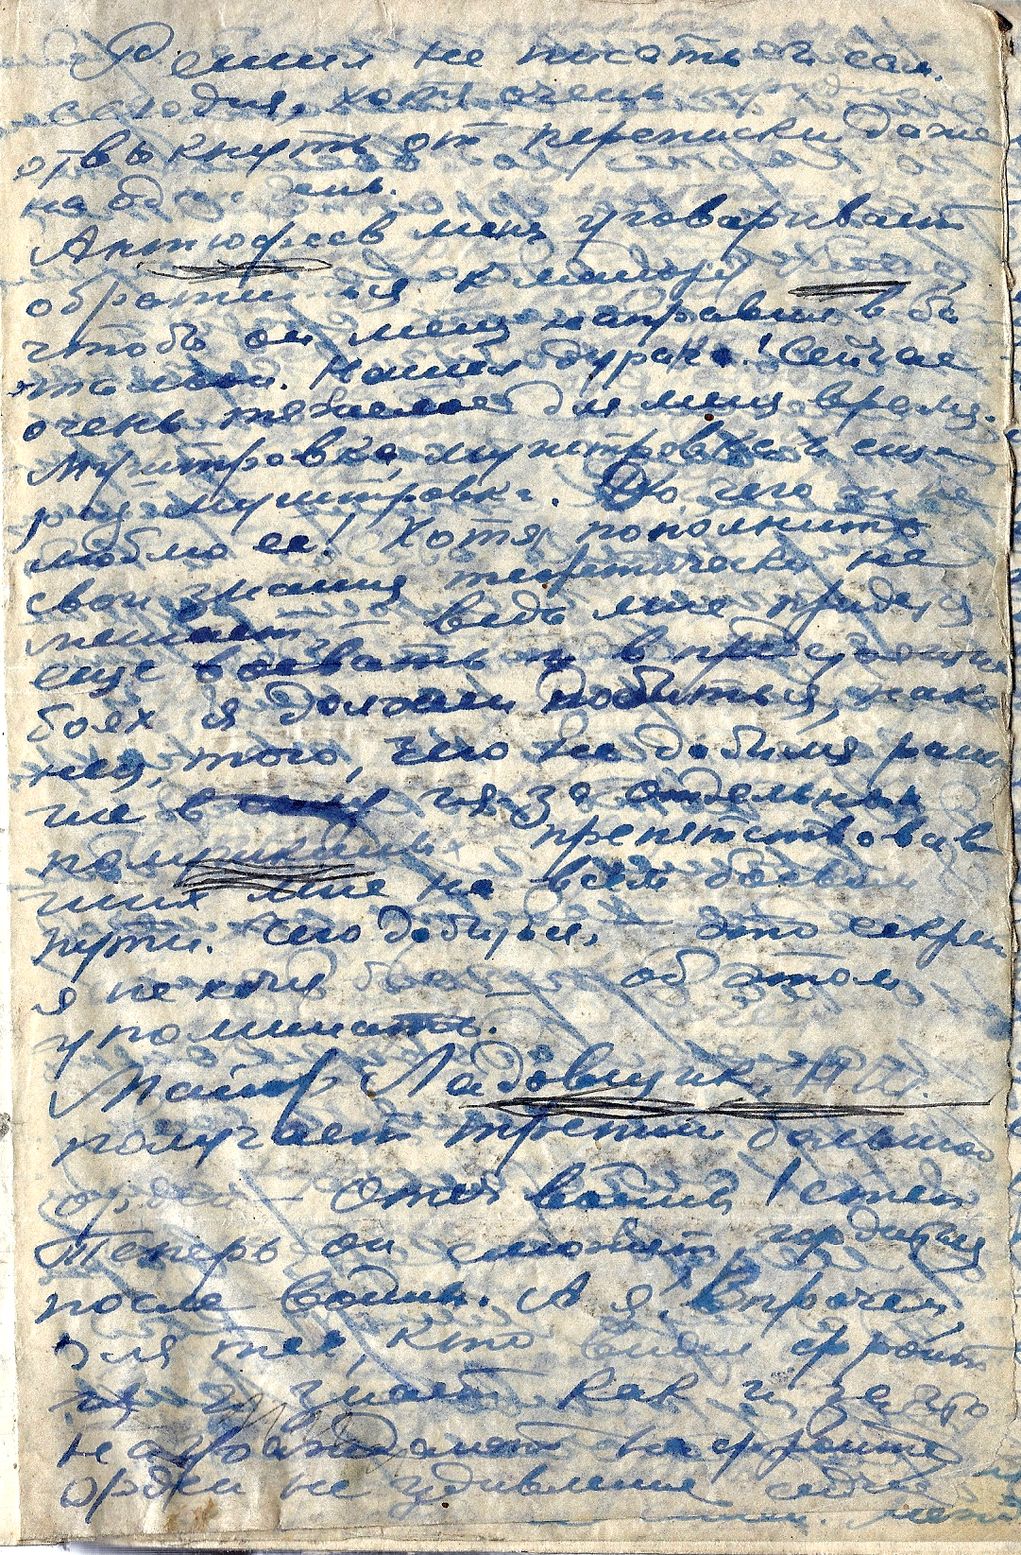 Решил не писать и сам.
сегодня, хотя очень трудно
отвыкнуть от переписки даже
на один день.
Антюфеев меня уговаривает
обратиться к майору
чтобы он меня направил в б-
тальон. Нашел дурака! Сейчас
очень тяжелое для меня время.
Муштровка, муштровка и еще
раз муштровка. До чего я не
люблю ее! Хотя пополнить
свои знания теоретически не
мешает – ведь мне придется
еще воевать и в предстоящих
боях я должен добиться, нако
нец, того, чего не добился рань
ше в из-за отдельных
препятствовав
ших мне на всем боевом
пути. Чего добиться, – это секрет
я не хочу об этом
упоминать.
Майор Ладовщик,
получает третий большой
орден – Отеч войны 1 степ
Теперь он сможет гордиться
после войны. А я! Впрочем,
для тех, кто видел фронт
и знает как и за что
награждают на фронте
ордена не удивление